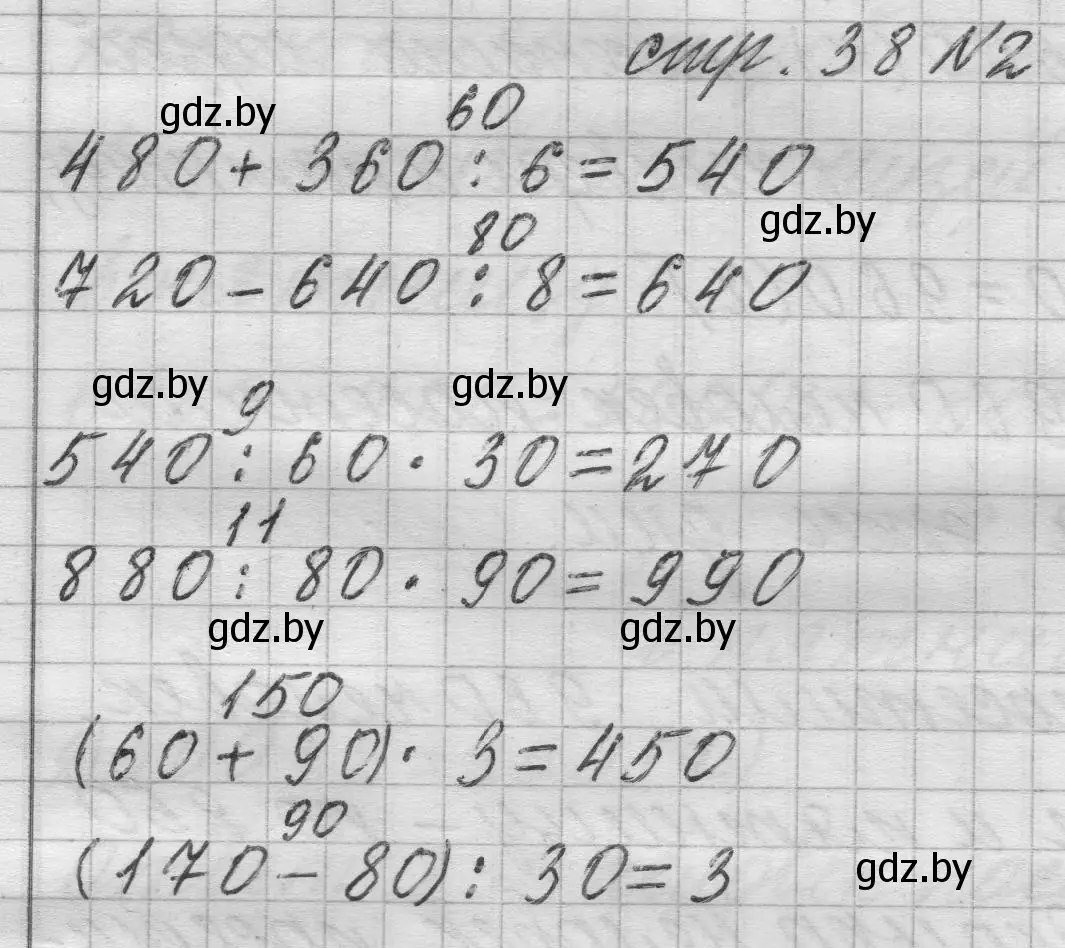 стр. 38 №2
gdz.by
60
480 + 360 : 6 = 540
gdz.by
80
720 - 640 : 8 = 640
gdz.by gdz.by
9
540 : 60 · 30 = 270
11
880 : 80 · 90 = 990
gdz.by gdz.by
150
(60 + 90) · 3 = 450
90
(170 - 80) : 30 = 3
gdz.by